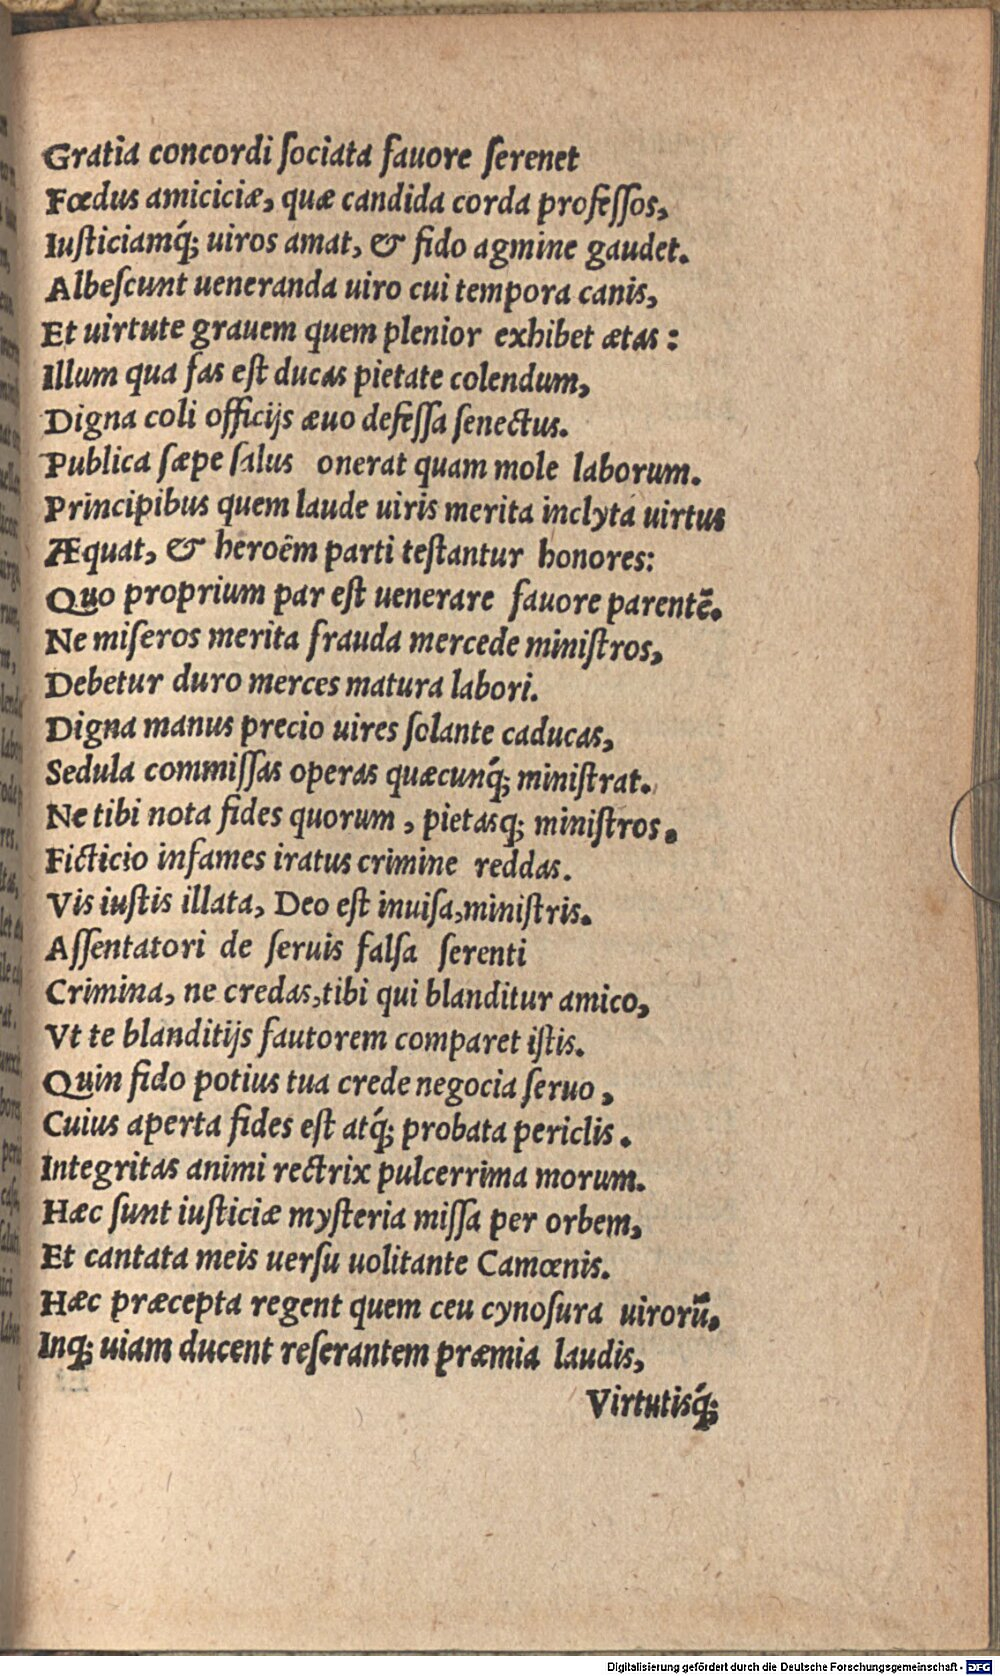 Gratia concordi ſociata fauore ſerenet
Fœdus amiciciæ, quæ candida corda profeſſos,
Iuſticiamq́; uiros amat, & fido agmine gaudet.
Albeſcunt ueneranda uiro cui tempora canis,
Et uirtute grauem quem plenior exhibet ætas:
Illum qua fas eſt ducas pietate colendum,
Digna coli officijs æuo defeſſa ſenectus.
Publica ſæpe ſalus onerat quam mole laborum.
Principibus quem laude uiris merita inclyta uirtus
Æquat, & heroëm parti teſtantur honores:
Quo proprium par eſt uenerare fauore parentē.
Ne miſeros merita frauda mercede miniſtros,
Debetur duro merces matura labori.
Digna manus precio uires ſolante caducas,
Sedula commiſſas operas quæcunq́; miniſtrat.
Ne tibi nota fides quorum, pietasq; miniſtros.
Ficticio infames iratus crimine reddas.
Vis iuſtis illata, Deo eſt inuiſa,miniſtris.
Aſſentatori de ſeruis falſa ſerenti
Crimina, ne credas,tibi qui blanditur amico,
Vt te blanditijs fautorem comparet iſtis.
Quin fido potius tua crede negocia ſeruo,
Cuius aperta fides eſt atq́; probata periclis.
Integritas animi rectrix pulcerrima morum.
Hæc ſunt iuſticiæ myſteria miſſa per orbem,
Et cantata meis uerſu uolitante Camœnis.
Hæc præcepta regent quem ceu cynoſura uirorū.
Inq; uiam ducent reſerantem præmia laudis,
Virtutisq́;
Digitalisierung gefördert durch die Deutsche Forschungsgemeinschaft - DFG